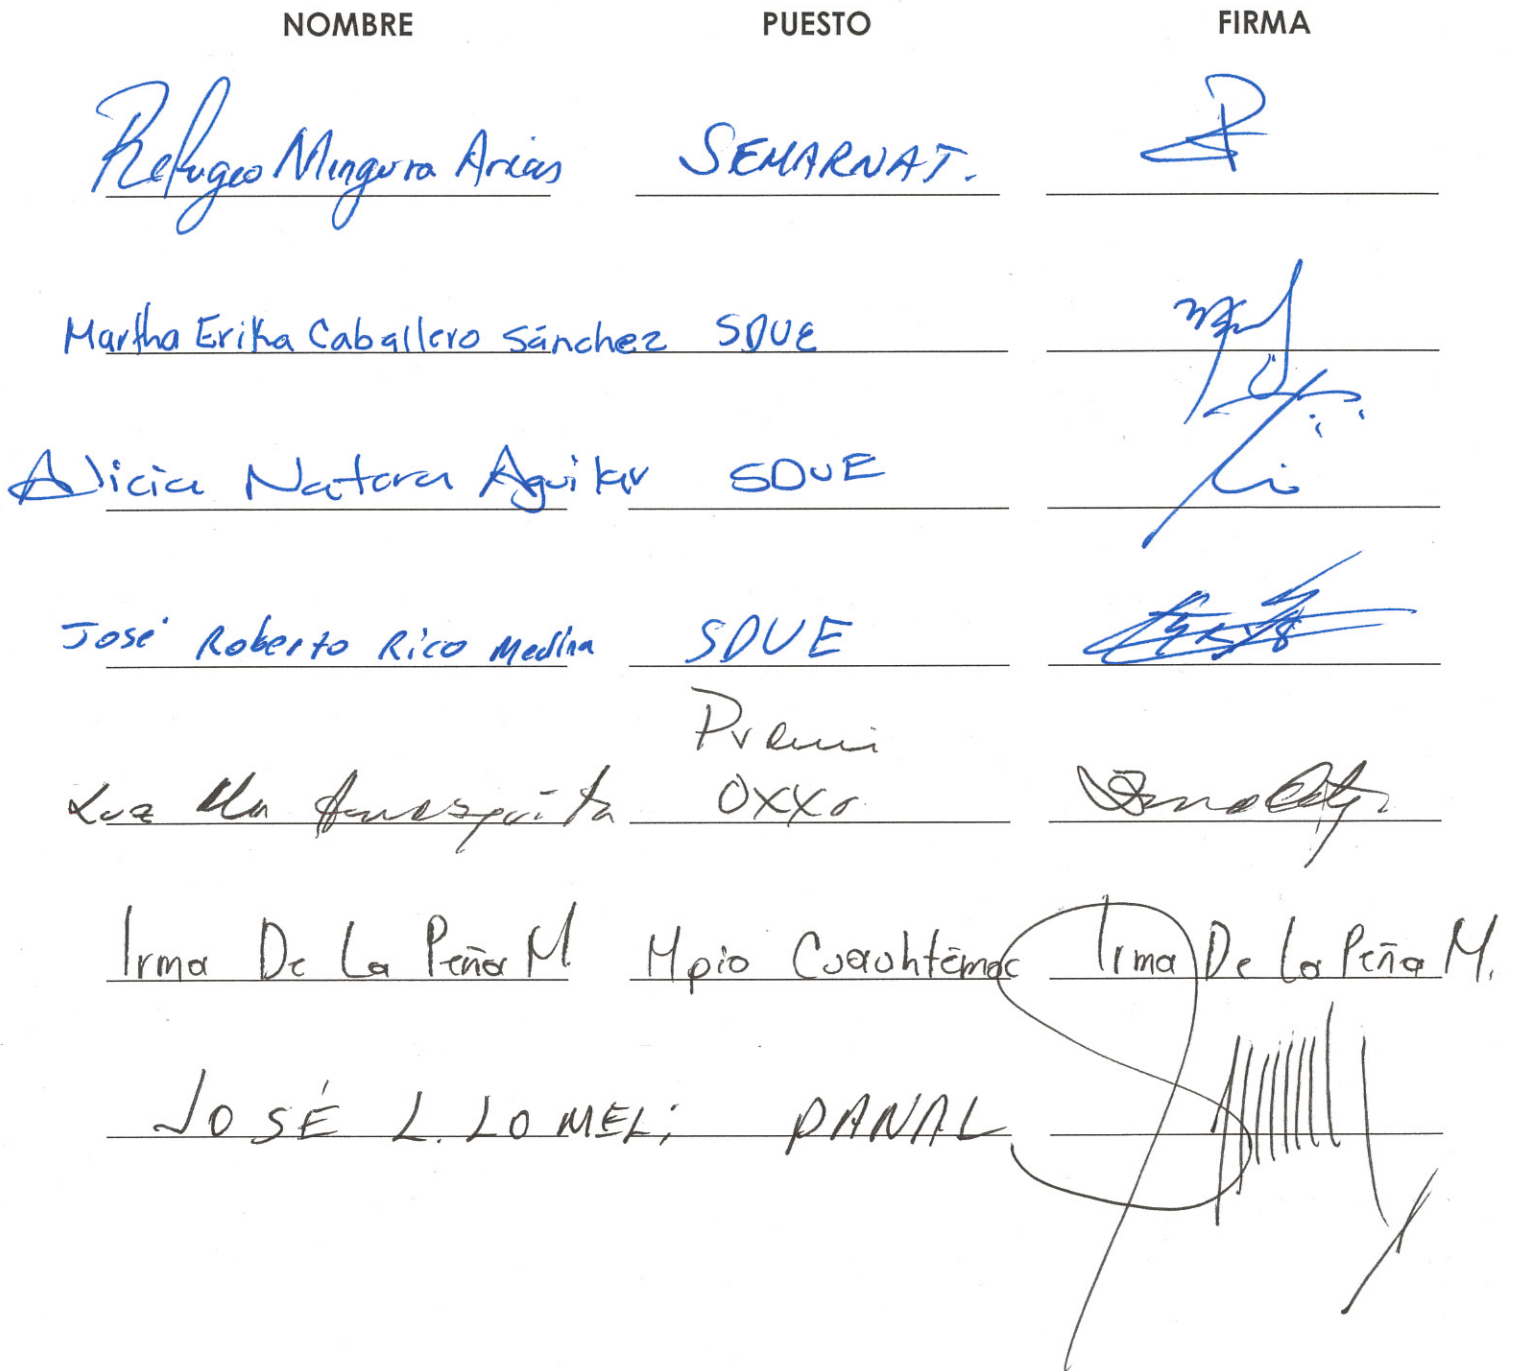 NOMBRE PUESTO FIRMA
Refugio Mingura Arias SEMARNAT.
Martha Erika Caballero Sánchez SDUE
Alicia Natara Aguilar SDUE
José Roberto Rico Medina SDUE
Premi
Luz OXXO
Irma De La Peña M Mpio Cuauhtémoc Irma De La Peña M.
JOSÉ L. LOMELí PANAL